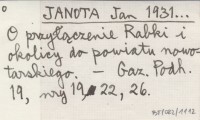 JANOTA Jan 1931...
O przyłączenie Rabki i
okolicy do powiatu nowo-
tarskiego. — Gaz. Podh.
19, nry 19, 22, 26.